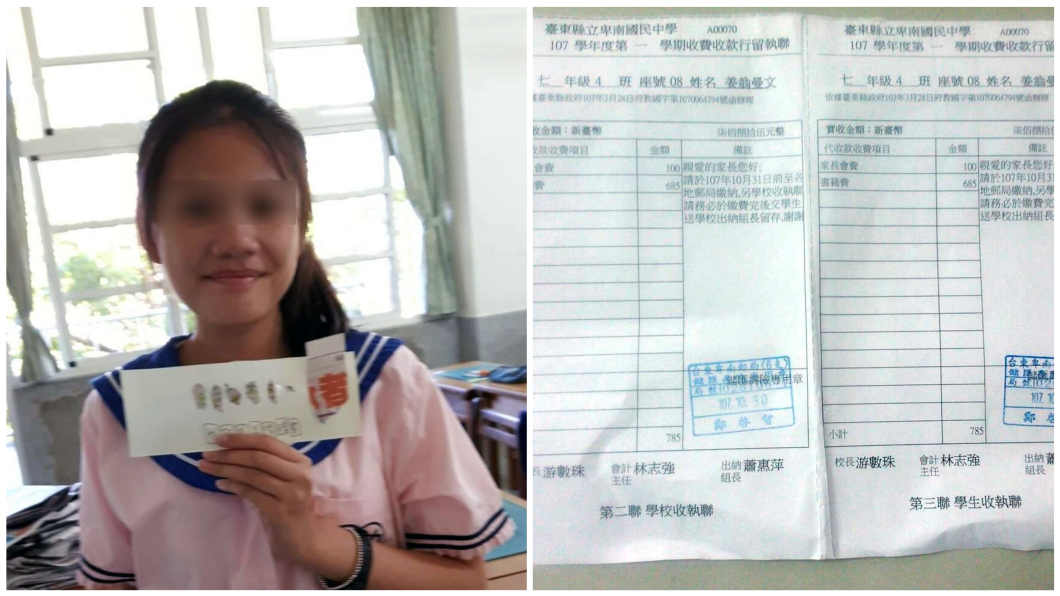 者
臺東縣立卑南國民中學 A00070
107 學年度第 一 學期收費收款行留執聯
七 年級 4 班 座號 08 姓名 姜翁曼文
臺東縣政府107年3月28日府教國字第1070064794號函辦理
收金額：新臺幣 柒佰捌拾伍元整
收款收費項目 金額 備註
會費 100 親愛的家長您好:
費 685 請於107年10月31日前至各
地郵局繳納,另學校收執聯
請務必於繳費完後交學生
送學校出納組長留存,謝謝
107. 10. 3 0
785
長 游數珠 會計主任 林志強 出納組長 蕭惠萍
第二聯 學校收執聯
臺東縣立卑南國民中學 A00070
107 學年度第 一 學期收費收款行留
七 年級 4 班 座號 08 姓名 姜翁曼
依據臺東縣政府107年3月28日府教國字第1070064794號函辦理
實收金額：新臺幣 柒佰捌拾伍
代收款收費項目 金額 備註
家長會費 100 親愛的家長您好:
書籍費 685 請於107年10月31
地郵局繳納,另學
請務必於繳費完
送學校出納組長
107. 10.
小計 785
校長 游數珠 會計主任 林志強 出納組長 蕭
第三聯 學生收執聯